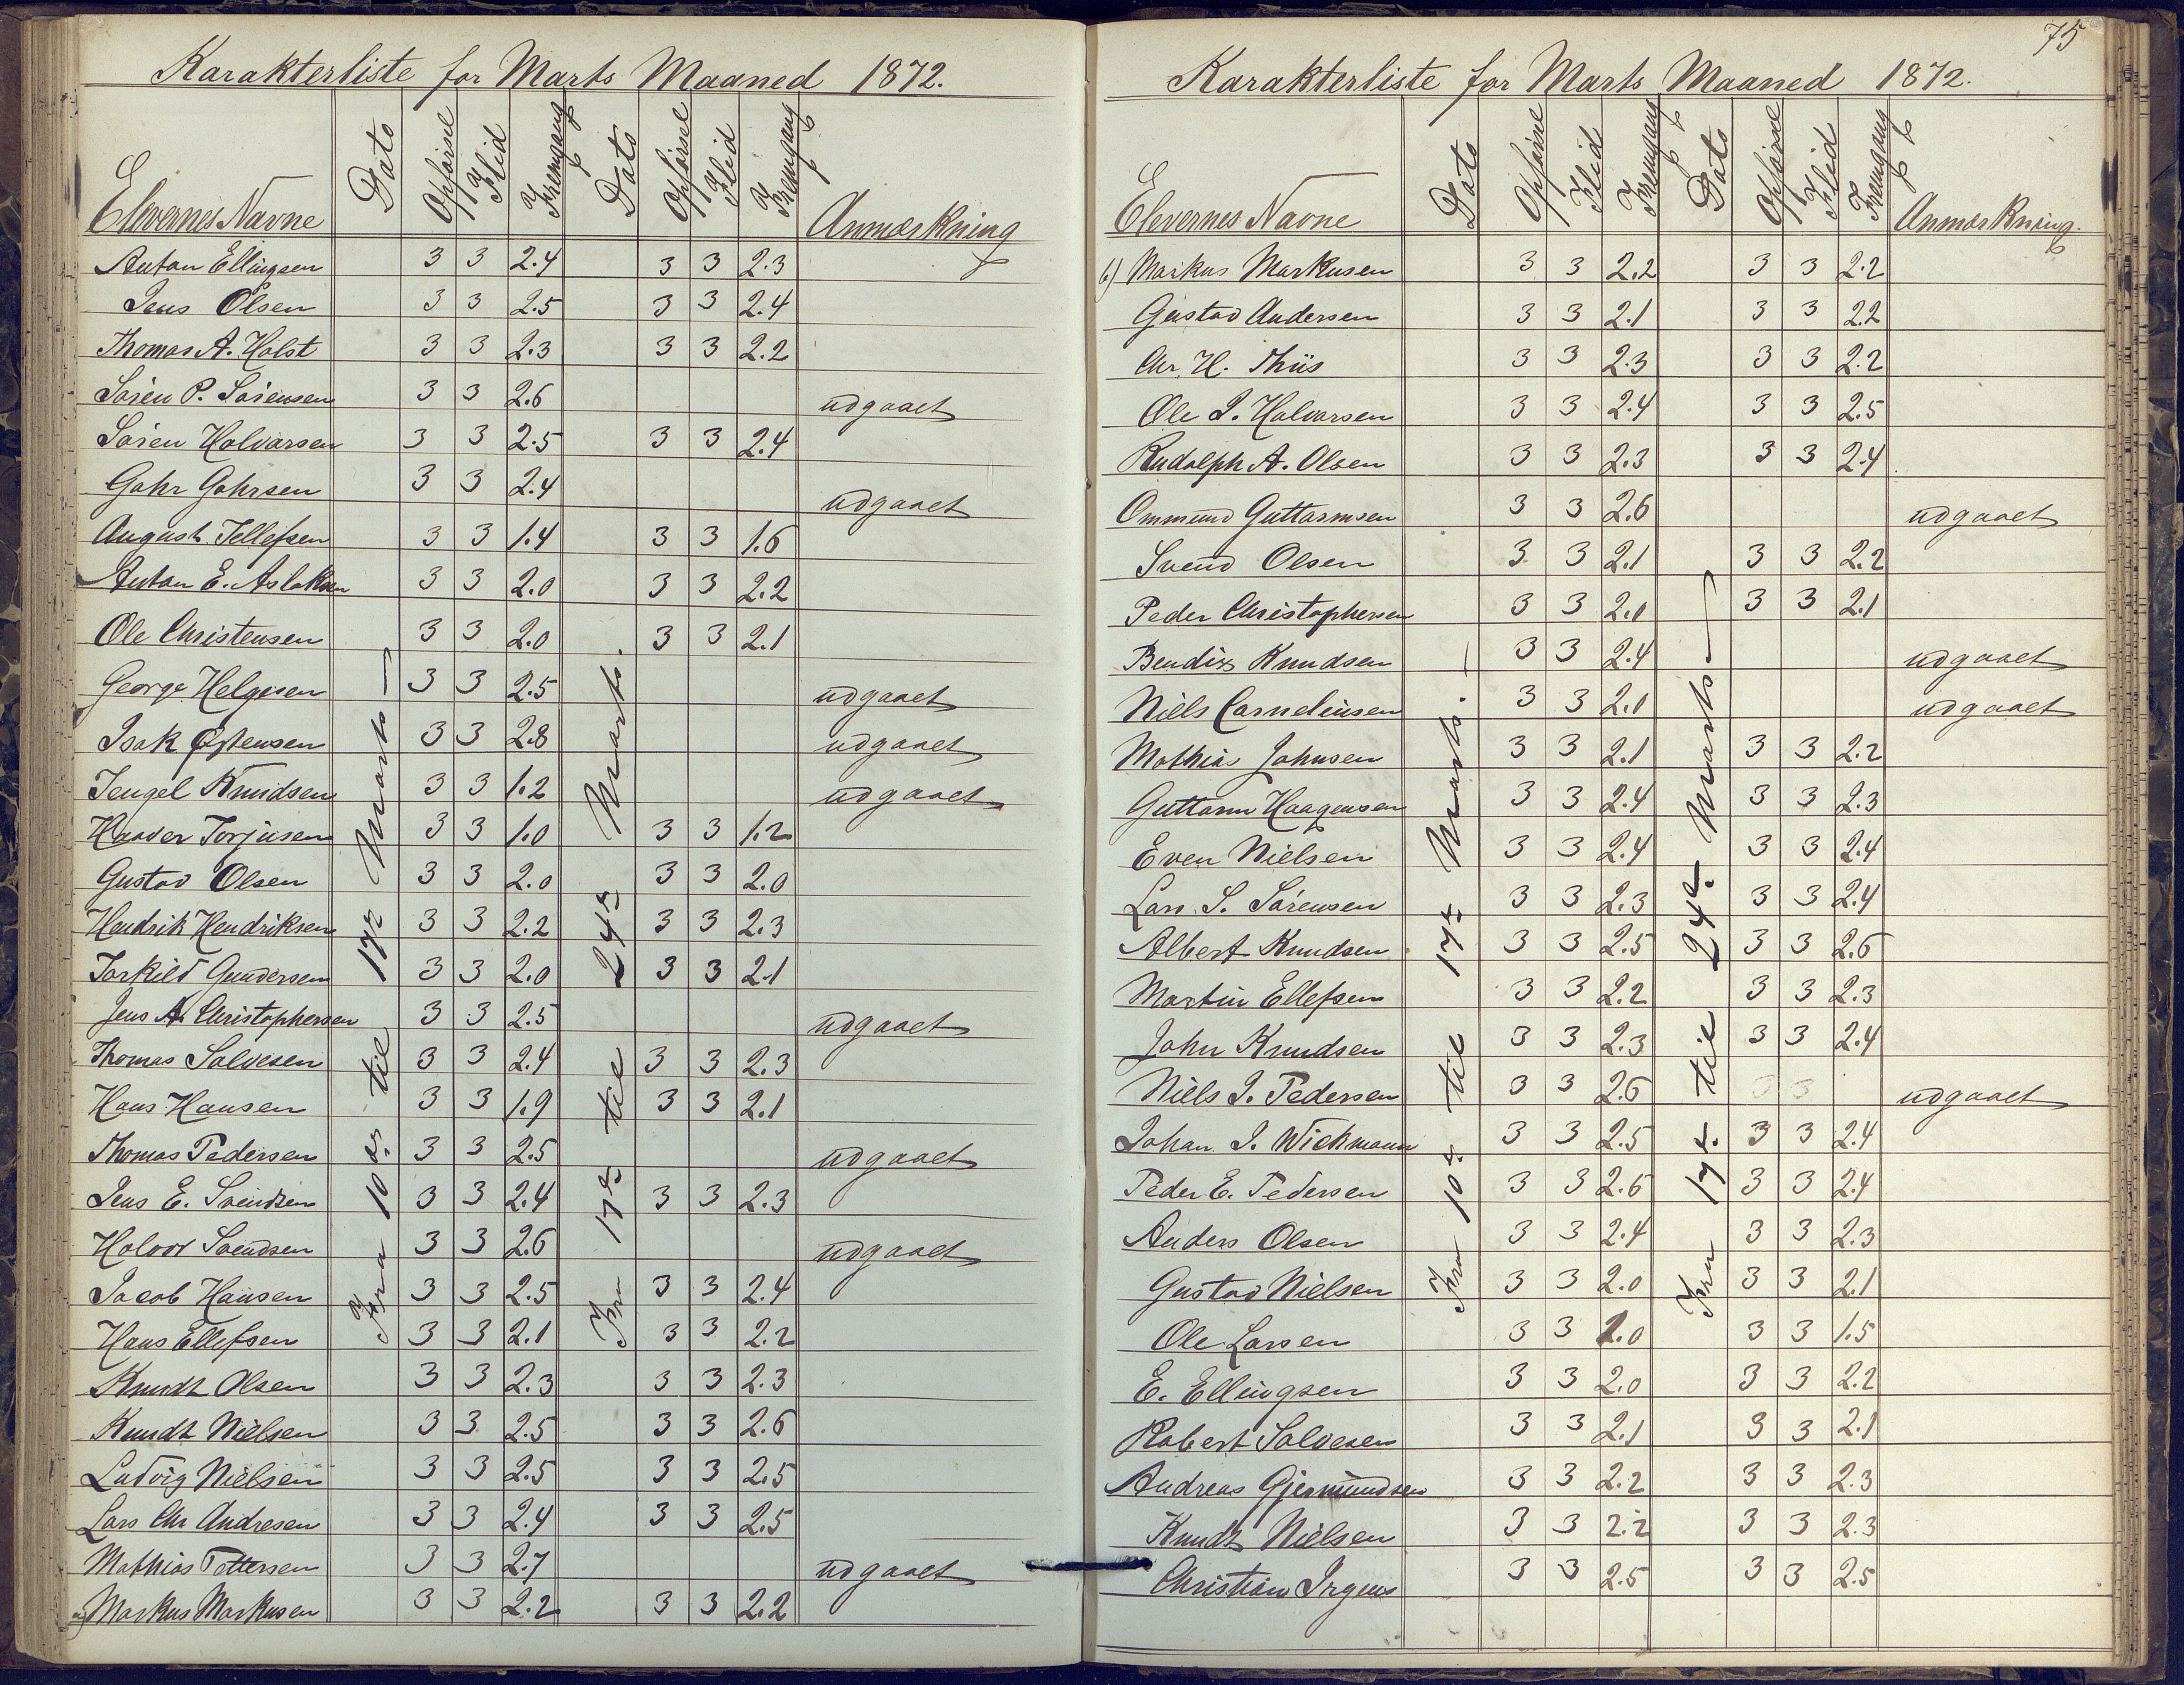 Karakterliste for Marts Maaned 1872.
Elevernes Navne Dato Opførsel Flid Fremgang Dato Opførsel Flid Fremgang Anmærkning
Fra 10de til 17de Marts
Fra 17de til 24de Marts.
Anton Ellingsen 3 3 2.4 3 3 2.3
Jens Olsen 3 3 2.5 3 3 2.4
Thomas A. Holst 3 3 2.3 3 3 2.2
Søren P. Sørensen 3 3 2.6 udgaaet
Søren Halvorsen 3 3 2.5 3 3 2.4
Gahr Gahrsen 3 3 2.4 udgaaet
August Tellefsen 3 3 1.4 3 3 1.6
Anton E. Aslaksen 3 3 2.0 3 3 2.2
Ole Christensen 3 3 2.0 3 3 2.1
George Helgesen 3 3 2.5 udgaaet
Isak Østensen 3 3 2.8 udgaaet
Tengel Knudsen 3 3 1.2 udgaaet
Haaver Torjusen 3 3 1.0 3 3 1.2
Gustav Olsen 3 3 2.0 3 3 2.0
Hendrik Hendriksen 3 3 2.2 3 3 2.3
Torkild Gundersen 3 3 2.0 3 3 2.1
Jens A. Christophersen 3 3 2.5 udgaaet
Thomas Salvesen 3 3 2.4 3 3 2.3
Hans Hansen 3 3 1.9 3 3 2.1
Thomas Pedersen 3 3 2.5 udgaaet
Jens E. Svendsen 3 3 2.4 3 3 2.3
Holvor Svendsen 3 3 2.6 udgaaet
Jacob Hansen 3 3 2.5 3 3 2.4
Hans Ellefsen 3 3 2.1 3 3 2.2
Knudt Olsen 3 3 2.3 3 3 2.3
Knudt Nielsen 3 3 2.5 3 3 2.6
Ludvig Nielsen 3 3 2.5 3 3 2.5
Lars Chr Andresen 3 3 2.4 3 3 2.5
Mathias Pettersen 3 3 2.7 udgaaet
a) Markus Markusen 3 3 2.2 3 3 2.2
75
Karakterliste for Marts Maaned 1872.
Elevernes Navne Dato Opførsel Flid Fremgang Dato Opførsel Flid Fremgang Anmærkning.
Fra 10de til 17de Marts.
Fra 17de til 24de Marts
b) Markus Markusen 3 3 2.2 3 3 2.2
Gustav Andersen 3 3 2.1 3 3 2.2
Chr. H. Thiis 3 3 2.3 3 3 2.2
Ole J. Halvorsen 3 3 2.4 3 3 2.5
Rudolph A. Olsen 3 3 2.3 3 3 2.4
Ommund Guttormsen 3 3 2.6 udgaaet
Svend Olsen 3 3 2.1 3 3 2.2
Peder Christophersen 3 3 2.0 3 3 2.1
Bendix Knudsen 3 3 2.4 udgaaet
Niels Corneliusen 3 3 2.0 udgaaet
Mathias Johnsen 3 3 2.1 3 3 2.2
Guttorm Haagensen 3 3 2.4 3 3 2.3
Even Nielsen 3 3 2.4 3 3 2.4
Lars S. Sørensen 3 3 2.3 3 3 2.4
Albert Knudsen 3 3 2.5 3 3 2.6
Martin Ellefsen 3 3 2.2 3 3 2.3
John Knudsen 3 3 2.3 3 3 2.4
Niels J. Pedersen 3 3 2.6 3 3 udgaaet
Johan J. Wickmann 3 3 2.5 3 3 2.4
Peder E. Pedersen 3 3 2.5 3 3 2.4
Anders Olsen 3 3 2.4 3 3 2.3
Gustav Nielsen 3 3 2.0 3 3 2.1
Ole Larsen 3 3 1.0 3 3 1.5
E. Ellingsen 3 3 2.0 3 3 2.2
Robert Salvesen 3 3 2.1 3 3 2.1
Andreas Gjermundsen 3 3 2.2 3 3 2.3
Knudt Nielsen 3 3 2.2 3 3 2.3
Christian Irgens 3 3 2.5 3 3 2.5